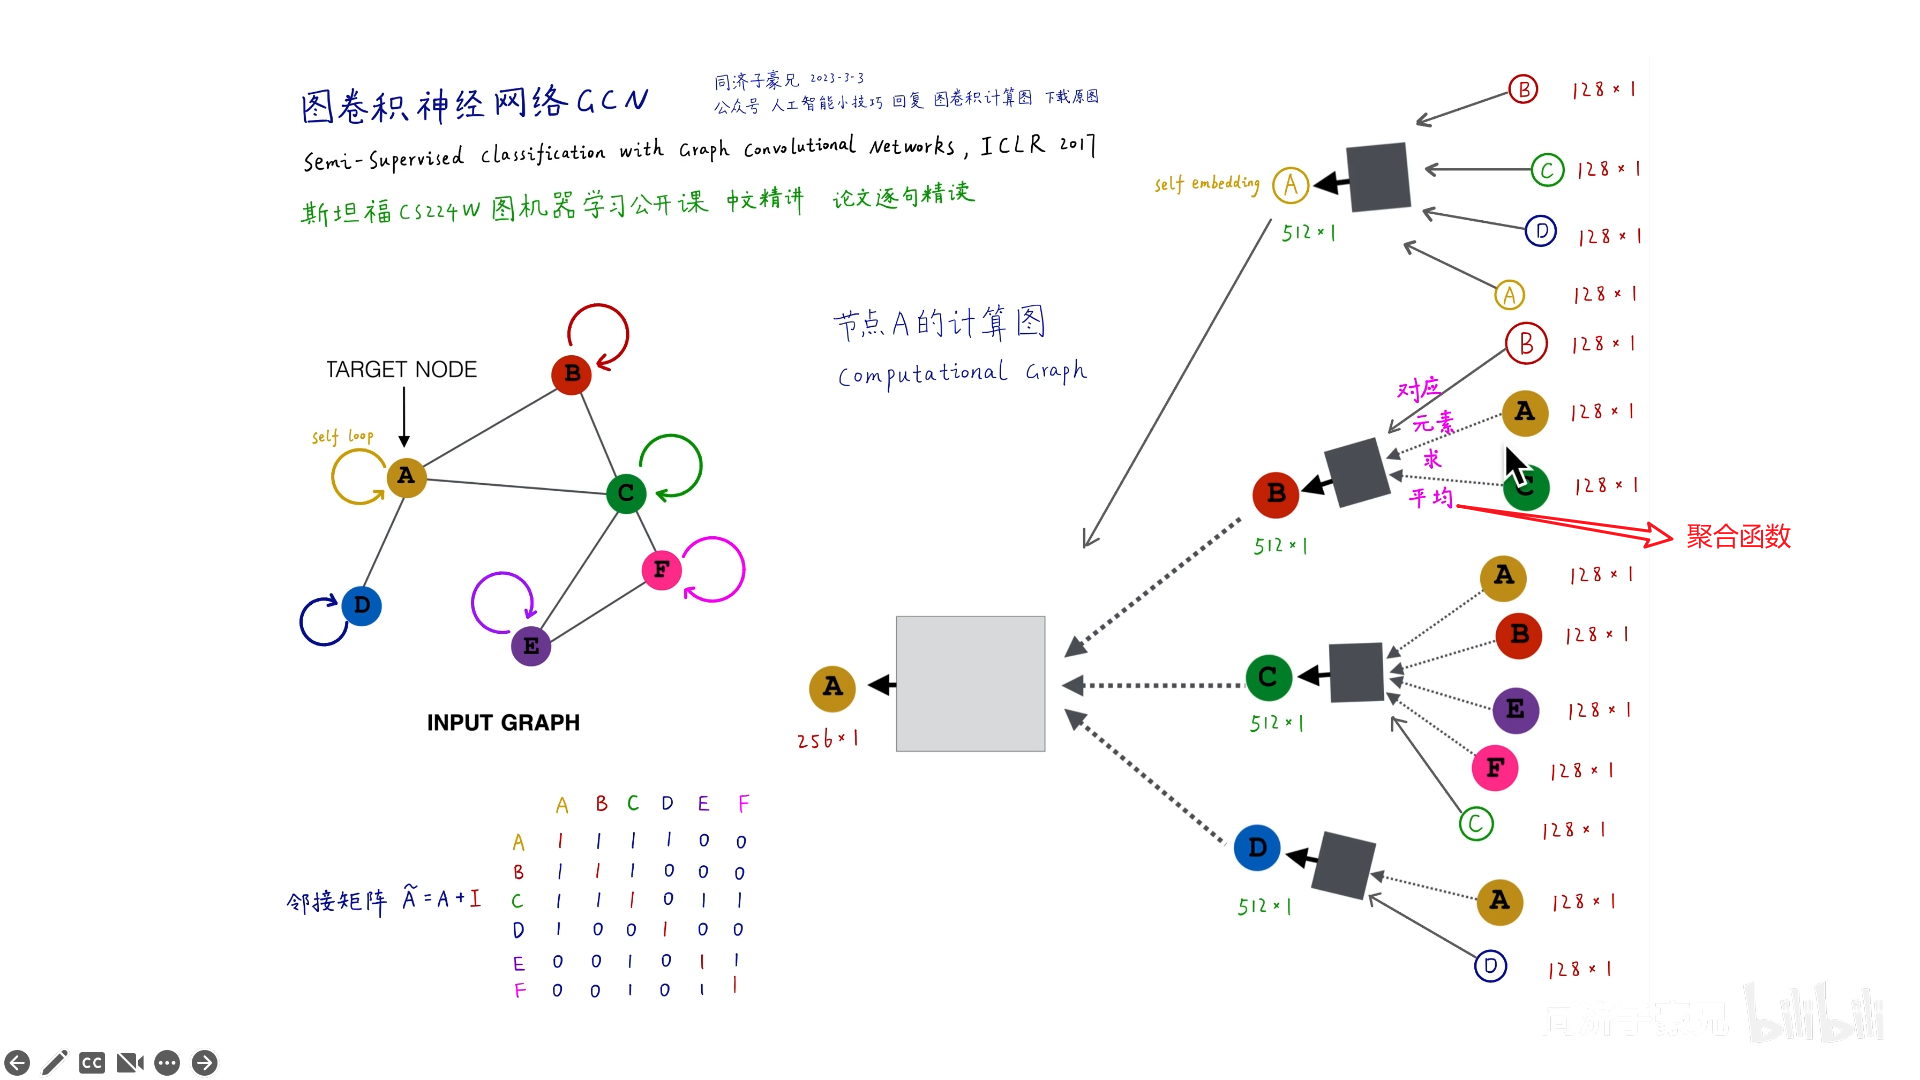 图卷积神经网络GCN
同济子豪兄 2023-3-3
公众号 人工智能小技巧 回复 图卷积计算图 下载原图
Semi-Supervised Classification with Graph Convolutional Networks, ICLR 2017
斯坦福CS224W图机器学习公开课 中文精讲 论文逐句精读
TARGET NODE
self loop
A
B
C
D
E
F
INPUT GRAPH
邻接矩阵 Ã=A+I
A B C D E F
A 1 1 1 1 0 0
B 1 1 1 0 0 0
C 1 1 1 0 1 1
D 1 0 0 1 0 0
E 0 0 1 0 1 1
F 0 0 1 0 1 1
节点A的计算图
Computational Graph
A
256×1
self embedding A
512×1
B 128×1
C 128×1
D 128×1
A 128×1
B
512×1
B 128×1
A 128×1
C 128×1
对应
元素
求
平均
聚合函数
C
512×1
A 128×1
B 128×1
E 128×1
F 128×1
C 128×1
D
512×1
A 128×1
D 128×1
同济子豪兄 bilibili
CC